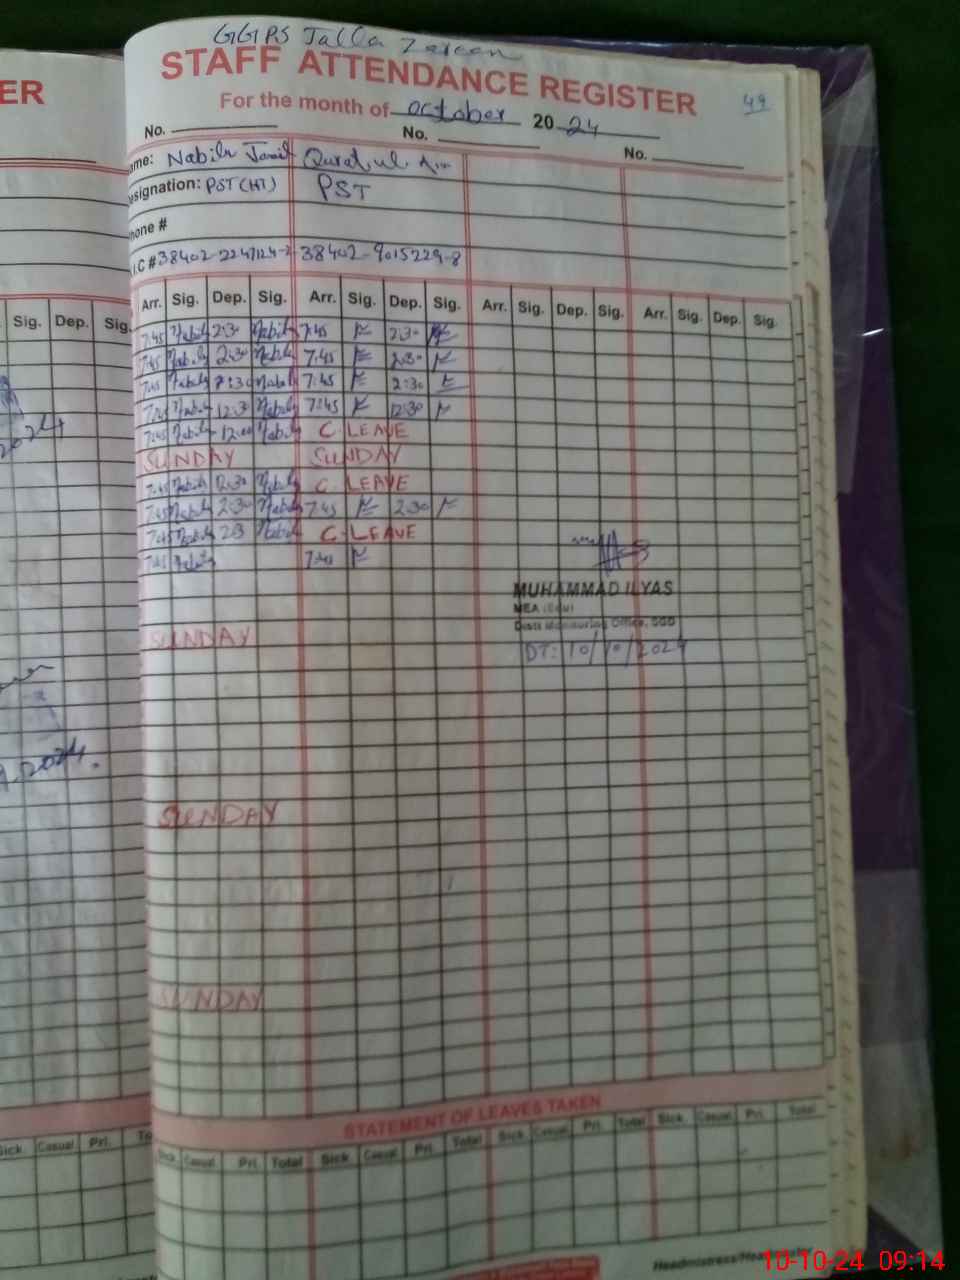 GGPS Jalla Zareen
ER
STAFF ATTENDANCE REGISTER
49
For the month of October 2024
No. No. No.
ame: Nabila Jamil Qurat ul Ain
esignation: PST (HT) PST
hone #
I.C # 38402-2247124-2 38402-9015229-8
Sig. Dep. Sig. Arr. Sig. Dep. Sig. Arr. Sig. Dep. Sig. Arr. Sig. Dep. Sig. Arr. Sig. Dep. Sig.
7:45 Nabila 2:30 Nabila 7:45 2:30
7:45 Nabila 2:30 Nabila 7:45 2:30
7:45 Nabila 2:30 Nabila 7:45 2:30
7:45 Nabila 12:30 Nabila 7:45 12:30
7:45 Nabila 12:00 Nabila C. LEAVE
SUNDAY SUNDAY
7:45 Nabila 2:30 Nabila C. LEAVE
7:45 Nabila 2:30 Nabila 7:45 2:30
7:45 Nabila 2:3 Nabila C. LEAVE
7:45 Nabila 7:45
MUHAMMAD ILYAS
MEA (Edu)
Distt Monitoring Office, SGD
DT: 10/10/2024
SUNDAY
2024
.2024.
SUNDAY
SUNDAY
STATEMENT OF LEAVES TAKEN
Sick Casual Pri. To Sick Casual Pri. Total Sick Casual Pri. Total Sick Casual Pri. Total Sick Casual Pri. Total
Headmistress/Hea
10-10-24 09:14